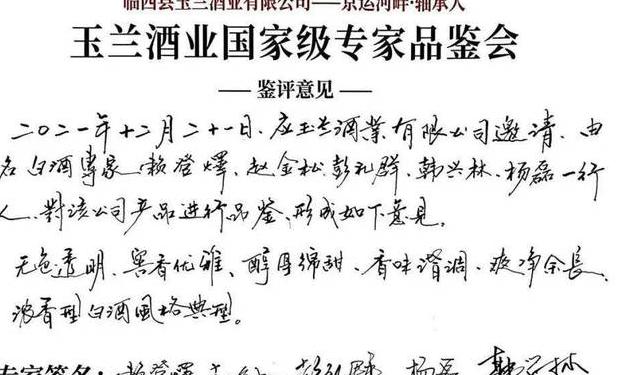 临西县玉兰酒业有限公司——京运河畔·轴承人
玉兰酒业国家级专家品鉴会
——鉴评意见——
二〇二一年十二月二十一日、应玉兰酒业有限公司邀请、由
名白酒專家 赖登燡、赵金松、彭礼群、韩兴林、杨磊一行
人、對该公司产品进行品鉴、形成如下意見。
无色透明、窖香优雅、醇厚绵甜、香味谐调、爽净余長、
浓香型白酒風格典型。
专家签名：赖登燡 杨磊 韩兴林